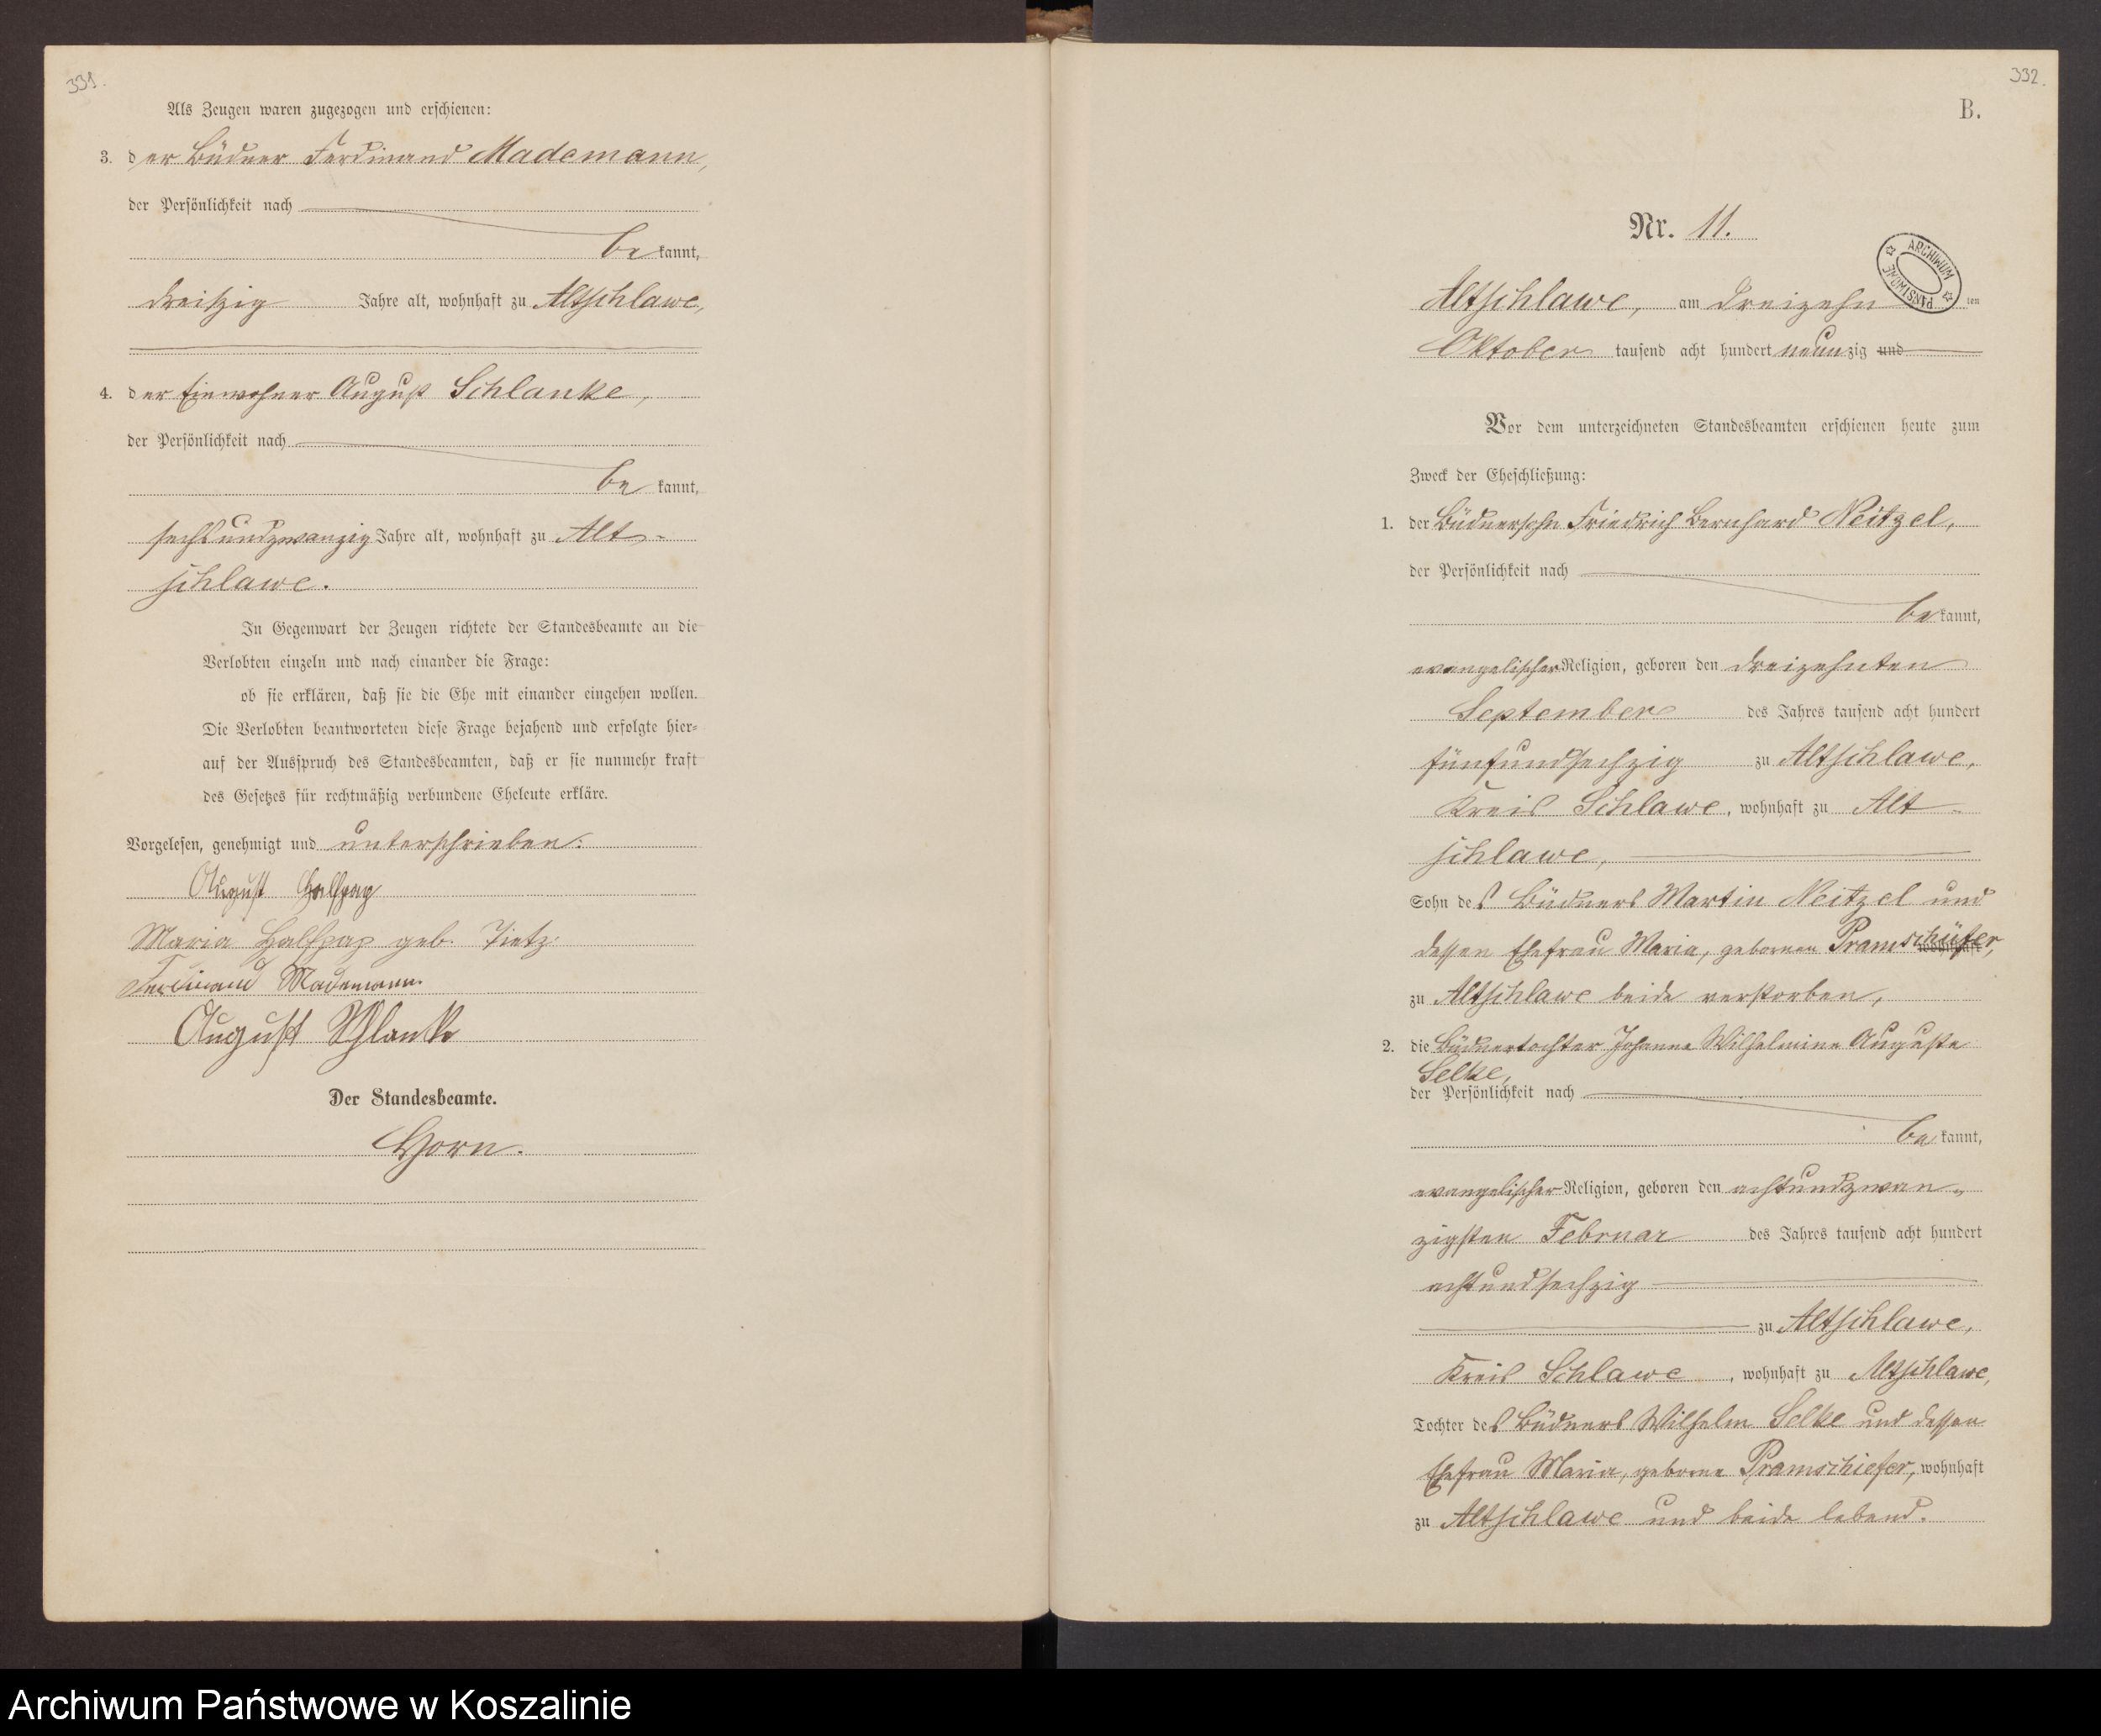 331.
Als Zeugen waren zugezogen und erschienen:
3. der Büdner Ferdinand Mademann,
der Persönlichkeit nach
bekannt,
dreißig Jahre alt, wohnhaft zu Altschlawe,
4. der Einwohner August Schlanke,
der Persönlichkeit nach
be kannt,
sechsundzwanzig Jahre alt, wohnhaft zu Alt-
schlawe.
In Gegenwart der Zeugen richtete der Standesbeamte an die
Verlobten einzeln und nach einander die Frage:
ob sie erklären, daß sie die Ehe mit einander eingehen wollen.
Die Verlobten beantworteten diese Frage bejahend und erfolgte hier=
auf der Ausspruch des Standesbeamten, daß er sie nunmehr kraft
des Gesetzes für rechtmäßig verbundene Eheleute erkläre.
Vorgelesen, genehmigt und unterschrieben:
August Halfpap
Maria Halfpap geb. Tietz.
Ferdinand Mademann.
August Schlanke
Der Standesbeamte.
Horn.
332.
B.
Nr. 11.
ARCHIWUM PAŃSTWOWE
Altschlawe, am dreizehn ten
Oktober tausend acht hundert neunzig und
Vor dem unterzeichneten Standesbeamten erschienen heute zum
Zweck der Eheschließung:
1. der Büdnersohn Friedrich Bernhard Neitzel,
der Persönlichkeit nach
be kannt,
evangelischer Religion, geboren den dreizehnten
September des Jahres tausend acht hundert
fünfundsechzig zu Altschlawe,
Kreis Schlawe, wohnhaft zu Alt-
schlawe,
Sohn des Büdners Martin Neitzel und
dessen Ehefrau Maria, geborenen Pramschüfer, wohnhaft
zu Altschlawe beide verstorben,
2. die Büdnertochter Johanne Wilhelmine Auguste
Selke,
der Persönlichkeit nach
be kannt,
evangelischer Religion, geboren den achtundzwan-
zigsten Februar des Jahres tausend acht hundert
achtundsechzig
zu Altschlawe,
Kreis Schlawe, wohnhaft zu Altschlawe,
Tochter des Büdners Wilhelm Selke und dessen
Ehefrau Maria, geborne Pramschiefer, wohnhaft
zu Altschlawe und beide lebend.
Archiwum Państwowe w Koszalinie